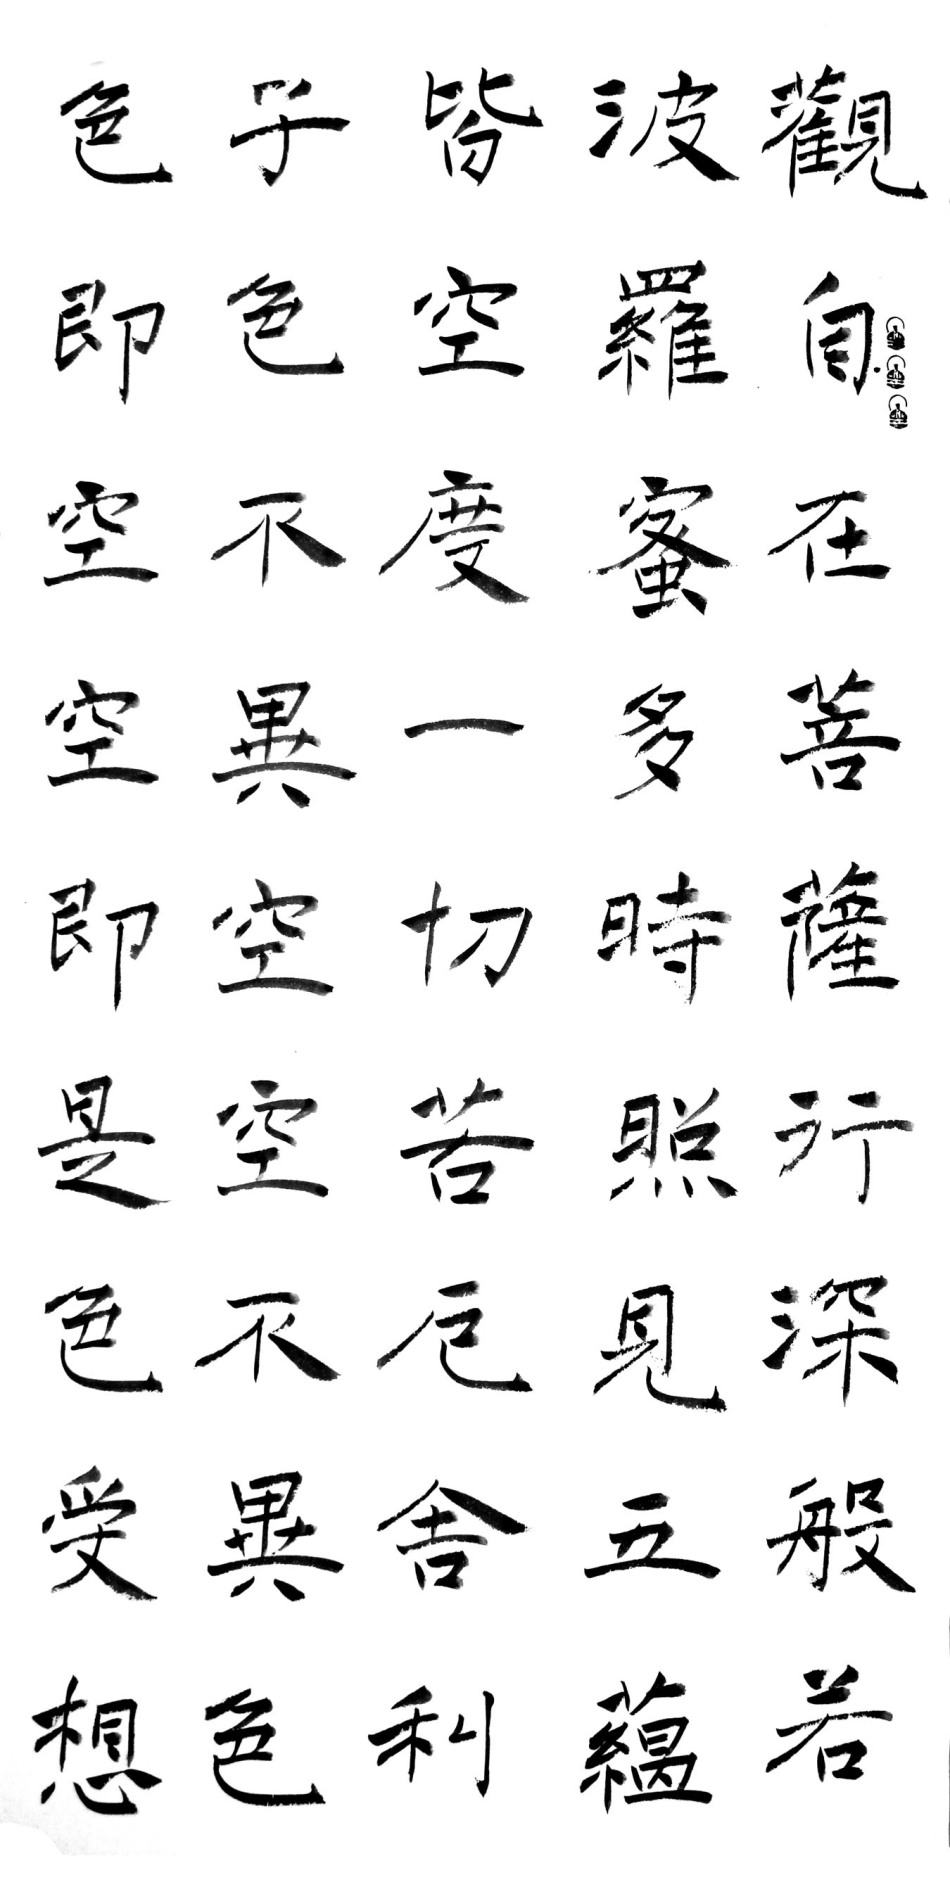 觀自在菩薩行深般若
波羅蜜多時照見五蘊
皆空度一切苦厄舍利
子色不異空空不異色
色即空空即是色受想